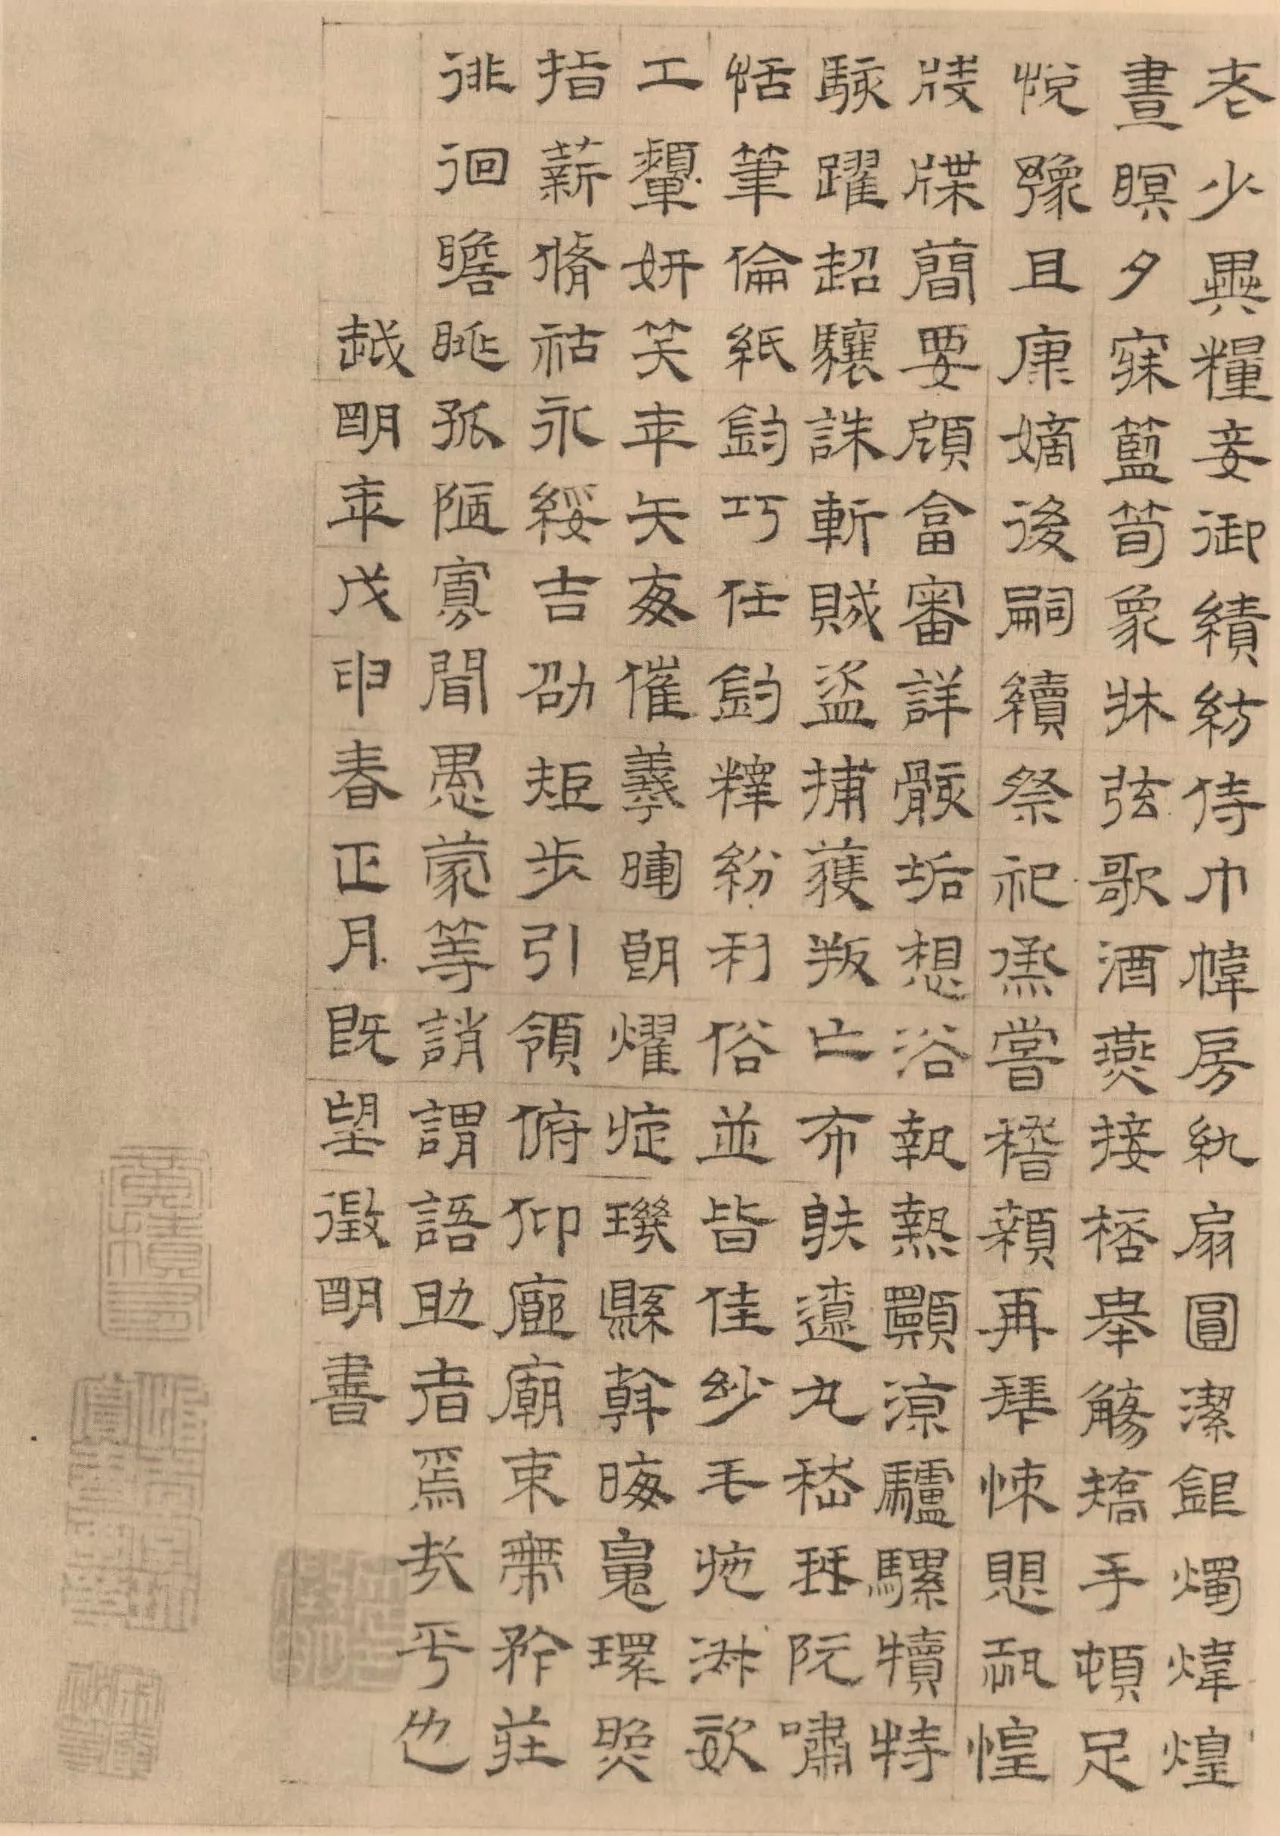 老少異糧妾御績紡侍巾幃房紈扇圓潔銀燭煒煌
晝瞑夕寐籃筍象牀弦歌酒燕接桮舉觴矯手頓足
悅豫且康嫡後嗣續祭祀烝嘗稽顙再拜悚懼恐惶
牋牒簡要顧答審詳骸垢想浴執熱願涼驢騾犢特
駭躍超驤誅斬賊盜捕獲叛亡布射遼丸嵇琴阮嘯
恬筆倫紙鈞巧任鈞釋紛利俗並皆佳妙毛施淑姿
工顰妍笑年矢每催羲暉朗耀旋璣縣斡晦魄環照
指薪脩祜永綏吉劭矩步引領俯仰廊廟束帶矜莊
徘徊瞻眺孤陋寡聞愚蒙等誚謂語助者焉哉乎也
越明年戊申春正月既望徵明書